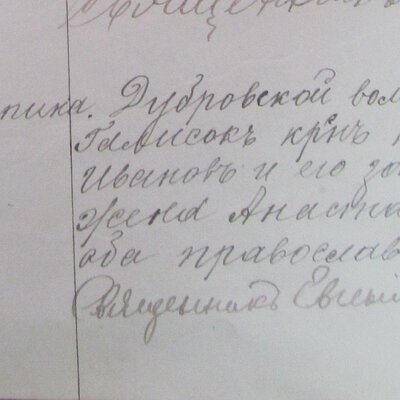 пика. Дубровской вол
Галисокъ крнъ
Ивановъ и его за
жена Анаста
оба православ
Священникъ Евгеній